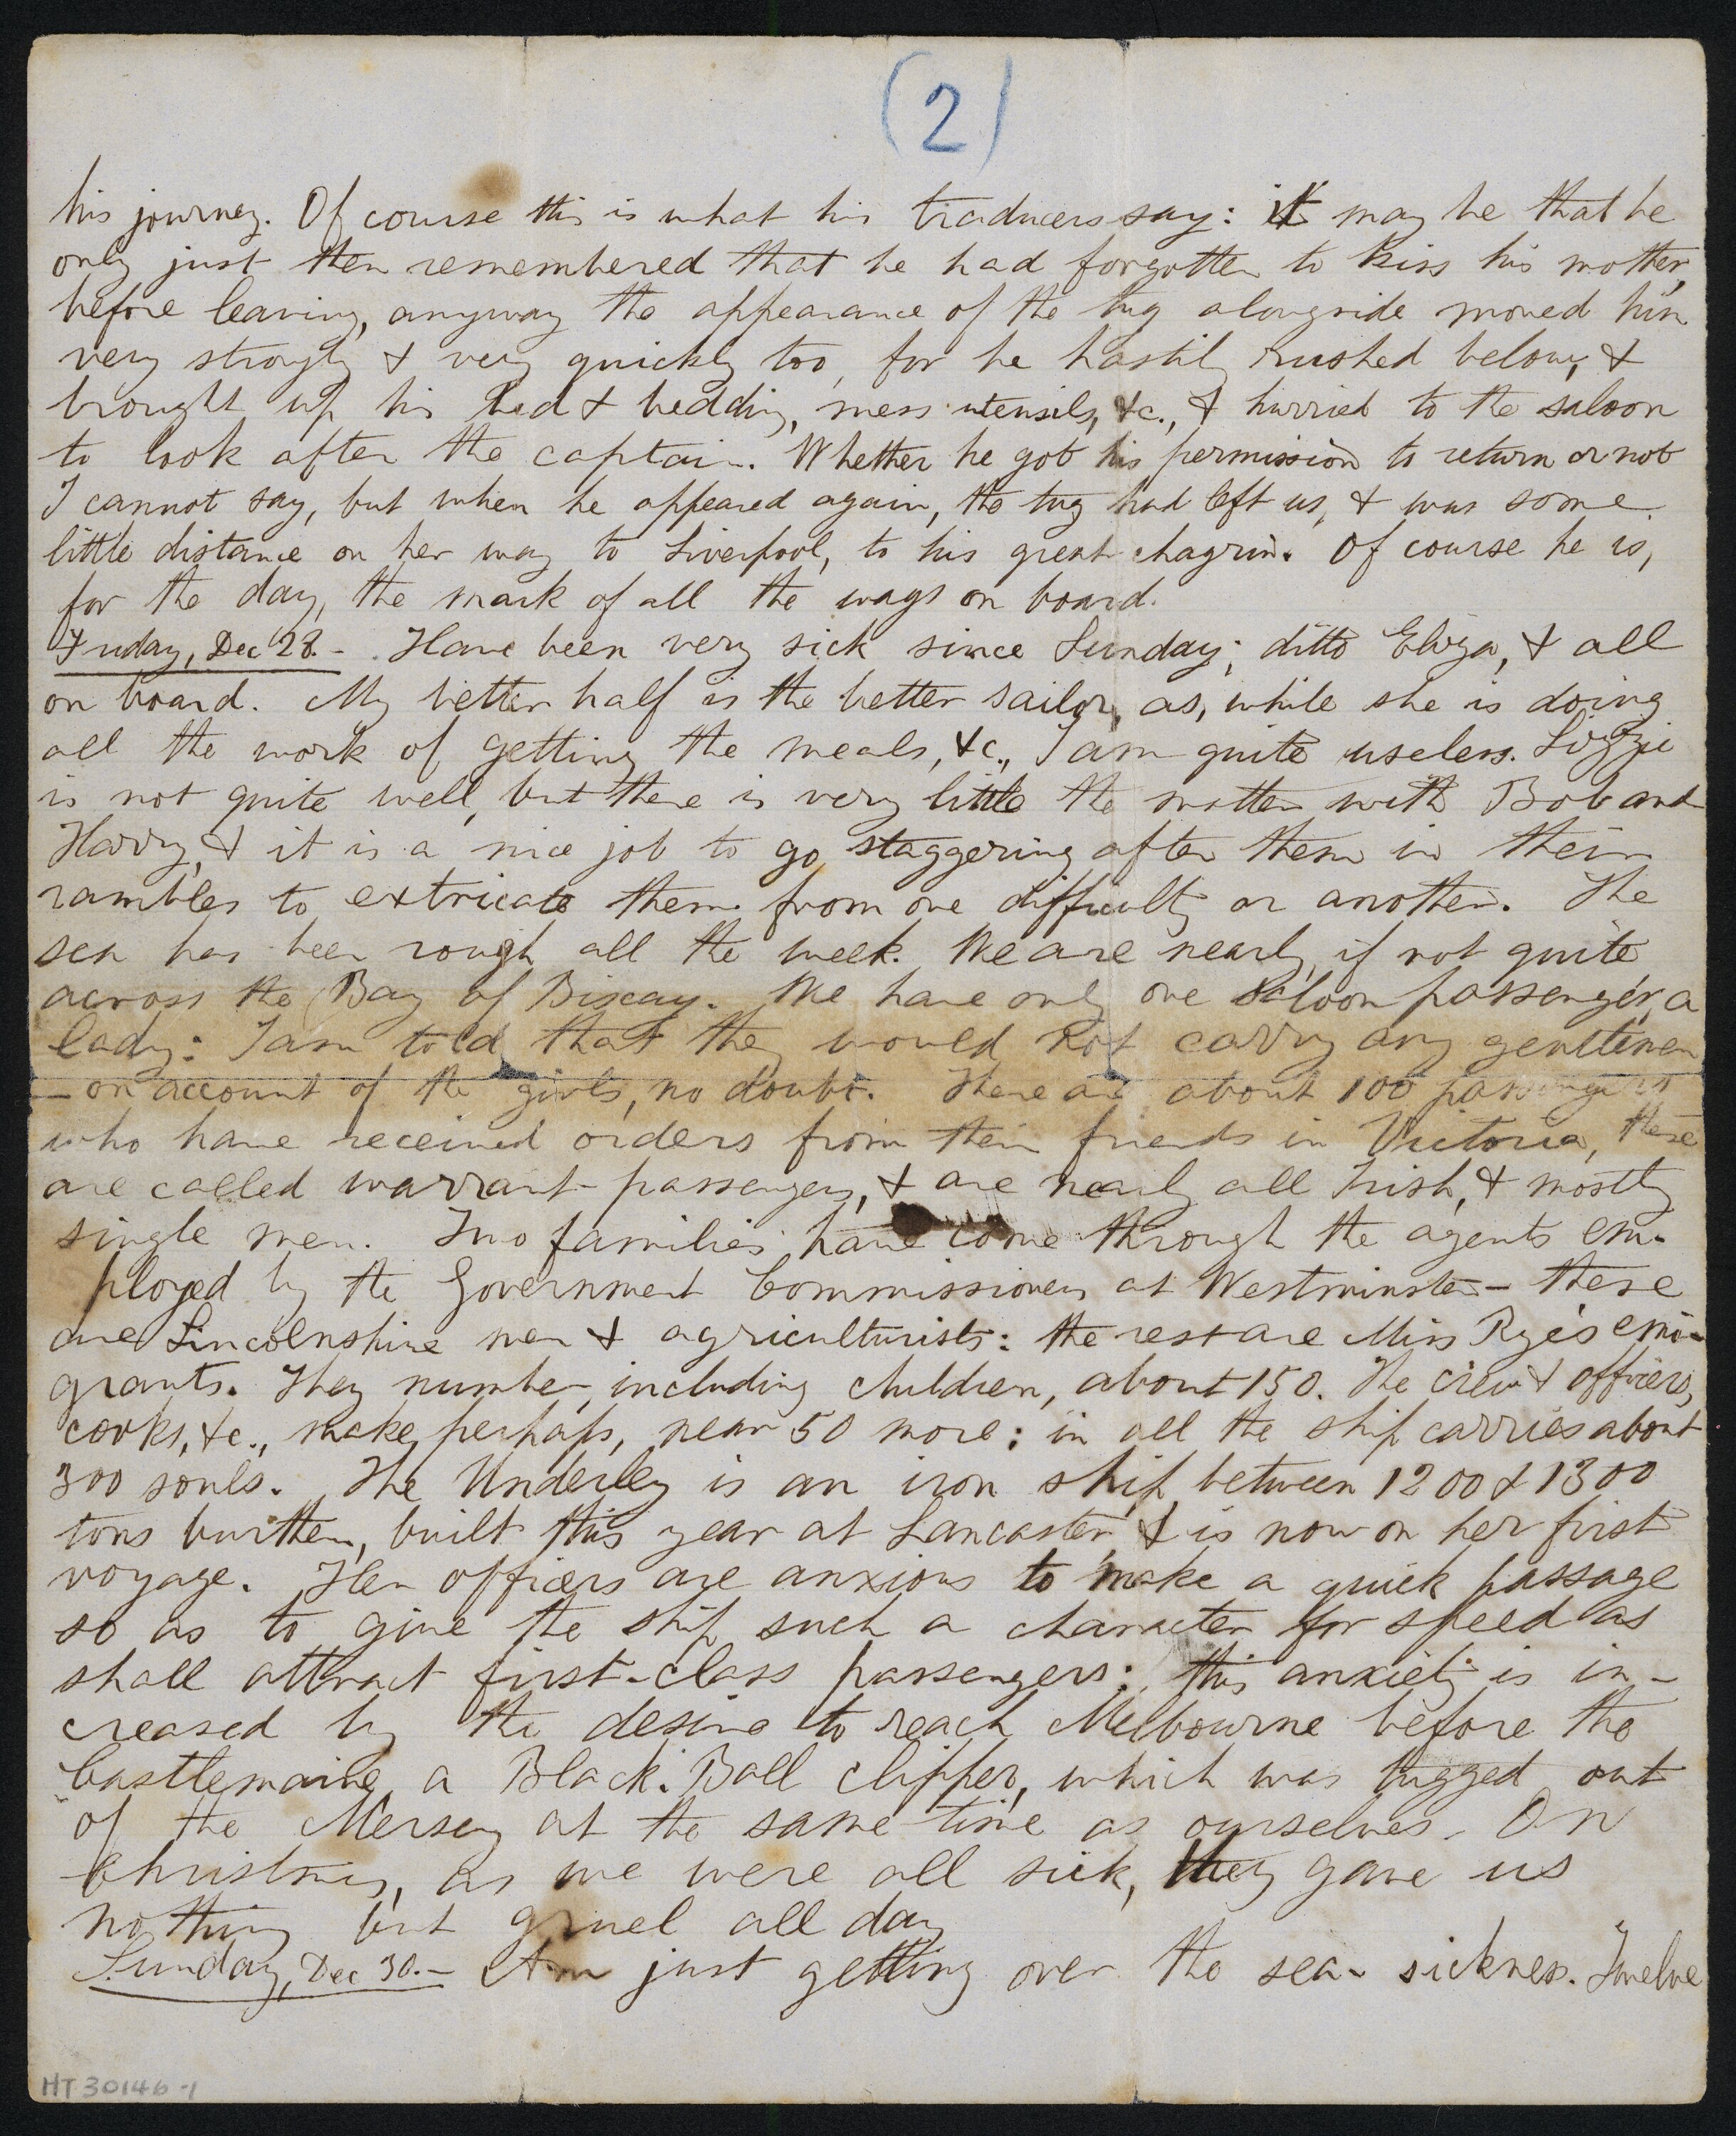 (2)
his journey. Of course this is what his traducers say: it may be that he
only just then remembered that he had forgotten to kiss his mother
before leaving, anyway the appearance of the tug alongside moved him
very strongly & very quickly too, for he hastily rushed below, &
brought up his bed & bedding, mess utensils, &c., & hurried to the saloon
to look after the captain. Whether he got his permission to return or not
I cannot say, but when he appeared again, the tug had left us, & was some
little distance on her way to Liverpool, to his great chagrin. Of course he is,
for the day, the mark of all the wags on board.
Friday, Dec 28. - Have been very sick since Sunday; ditto Eliza, & all
on board. My better half is the better sailor, as, while she is doing
all the work of getting the meals, &c., I am quite useless. Lizzie
is not quite well, but there is very little the matter with Bob and
Harry, & it is a nice job to go staggering after them in their
rambles to extricate them from one difficulty or another. The
sea has been rough all the week. We are nearly, if not quite,
across the Bay of Biscay. We have only one saloon passenger, a
lady: I am told that they would not carry any gentlemen
- on account of the girls, no doubt. There are about 100 passengers
who have received orders from their friends in Victoria, these
are called warrant passengers, & are nearly all Irish, & mostly
single men. Two families have come through the agents em-
ployed by the Government Commissioners at Westminster - these
are Lincolnshire men & agriculturists: the rest are Miss Rye's emi-
grants. They number, including children, about 150. The crew & officers,
cooks, &c., make, perhaps, near 50 more; in all the ship carries about
300 souls. The Underley is an iron ship, between 1200 & 1300
tons burthen, built this year at Lancaster, & is now on her first
voyage. Her officers are anxious to make a quick passage
so as to give the ship such a character for speed as
shall attract first-class passengers: this anxiety is in-
creased by the desire to reach Melbourne before the
Castlemaine, a Black Ball clipper, which was tugged out
of the Mersey at the same time as ourselves. On
Christmas, as we were all sick, they gave us
nothing but gruel all day
Sunday, Dec 30. - Am just getting over the sea-sickness. Twelve
HT 30146-1